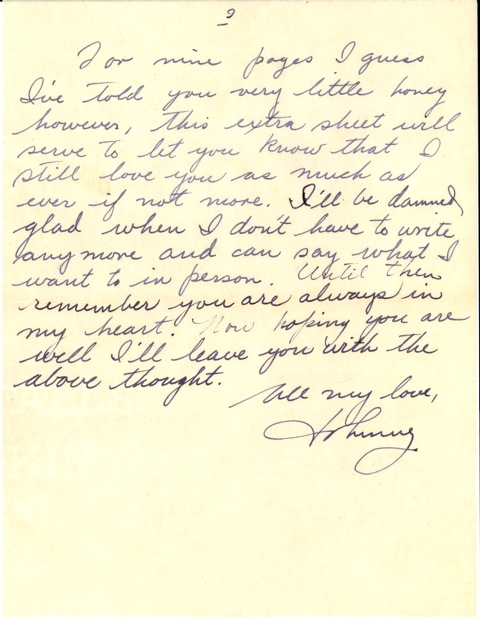 9
For nine pages I guess
I've told you very little honey
however, this extra sheet will
serve to let you know that I
still love you as much as
ever if not more. I'll be damned
glad when I don't have to write
anymore and can say what I
want to in person. Until then
remember you are always in
my heart. Now hoping you are
well I'll leave you with the
above thought.
All my love,
Johnny